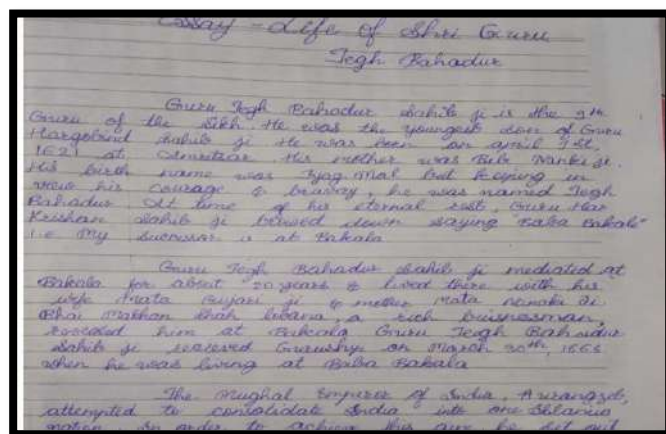 Essay - Life of Shri Guru
Tegh Bahadur
Guru Tegh Bahadur Sahib ji is the 9th
Guru of the Sikh. He was the youngest son of Guru
Hargobind Sahib ji He was born on april 1st,
1621 at Amritsar. His mother was Bibi Nanki ji.
His birth name was Tyag Mal but keeping in
view his courage & bravay, he was named Tegh
Bahadur At time of his eternal rest, Guru Har
Krishan Sahib ji bowed down saying "Baba Bakale"
i.e My sucessor is at Bakala
Guru Tegh Bahadur Sahib ji mediated at
Bakala for about 20 years & lived there with his
wife Mata Gujari ji & mother Mata nanaki ji.
Bhai Makhan Shah lobana, a rich buisnesman,
revealed him at Bakala Guru Tegh Bahadur
Sahib ji received Gurushyi on March 30th, 1665
when he was living at Baba Bakala
The Mughal Emperer of India, Aurangzeb,
attempted to consolidate India into one Islamic
nation. In order to achieve this aim, he set out